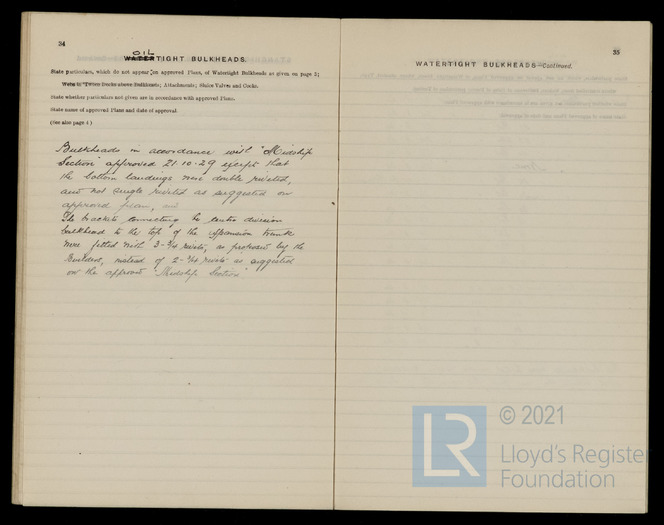 34
OIL
WATERTIGHT BULKHEADS.
State particulars, which do not appear on approved Plans, of Watertight Bulkheads as given on page 5;
Webs in 'Tween Decks above Bulkheads; Attachments; Sluice Valves and Cocks.
State whether particulars not given are in accordance with approved Plans.
State name of approved Plans and date of approval.
(See also page 4)
Bulkheads in accordance with "Midship
Section" approved 21-10-29 except that
the bottom landings were double riveted,
and not single riveted as suggested on
approved plan, and
The brackets connecting the centre division
bulkhead to the top of the expansion trunk
were fitted with 3-3/4 rivets, as proposed by the
Builders, instead of 2-3/4 rivets as suggested
on the approved "Midship Section"
35
WATERTIGHT BULKHEADS—Continued.
LR
© 2021
Lloyd's Register
Foundation